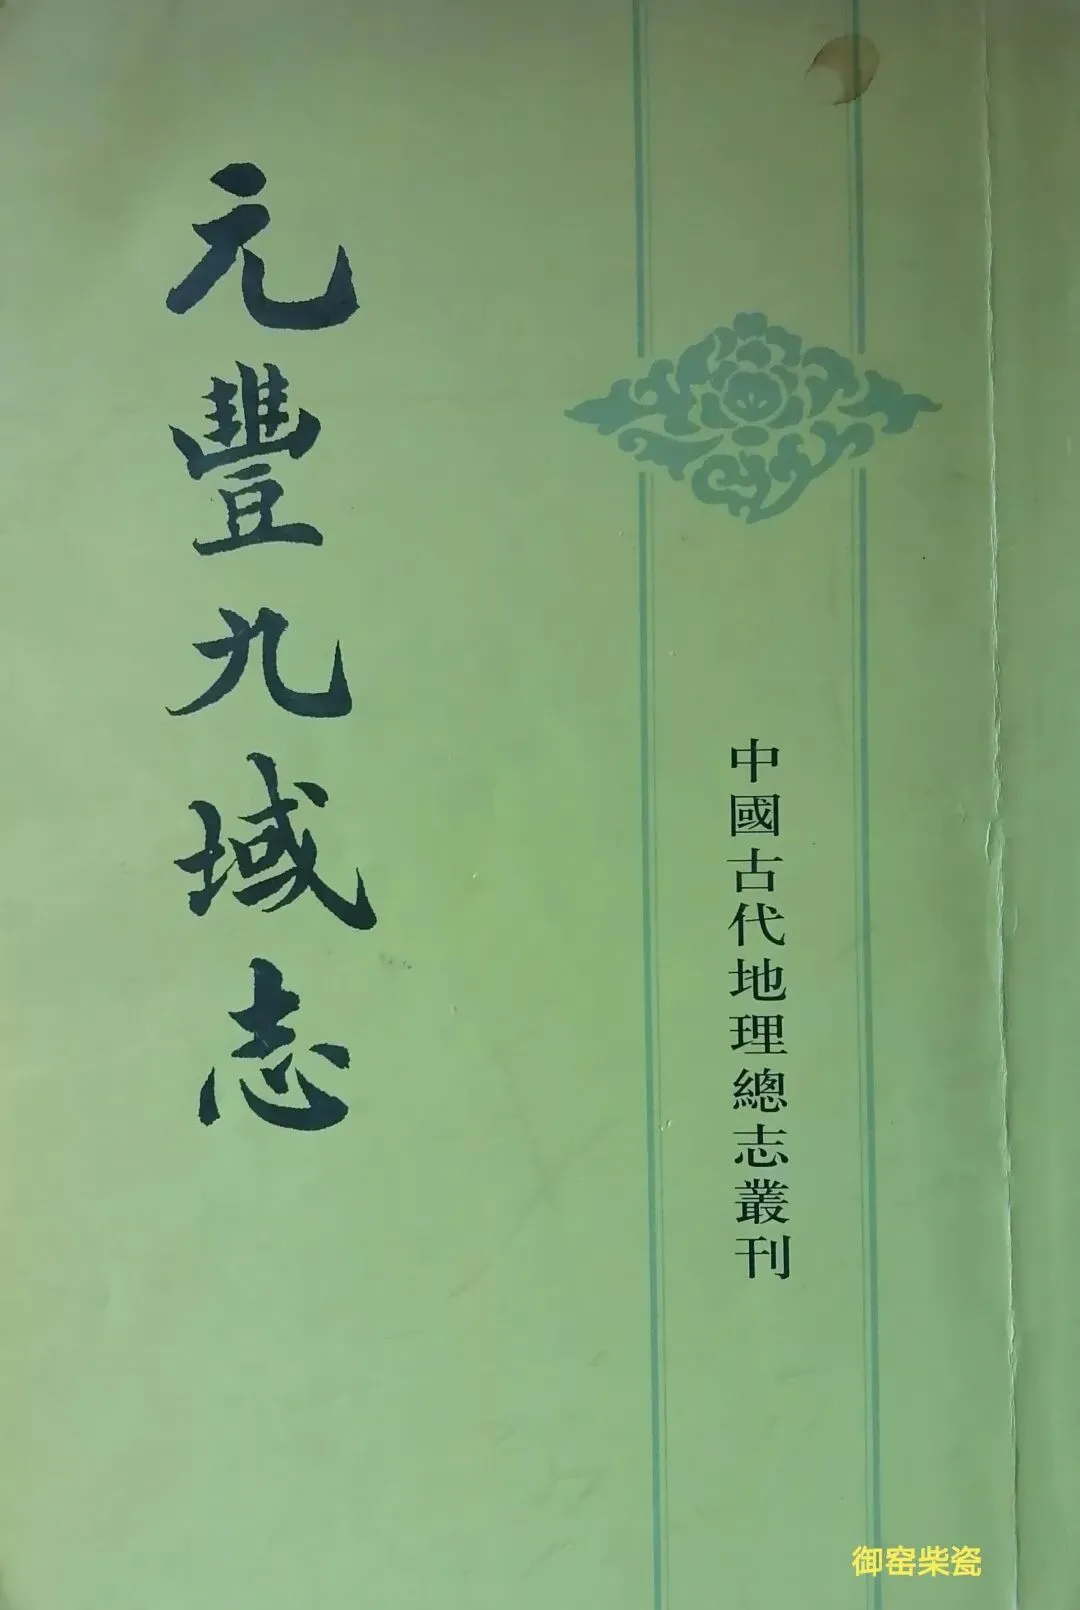 中國古代地理總志叢刊
元豐九域志
御窑柴瓷